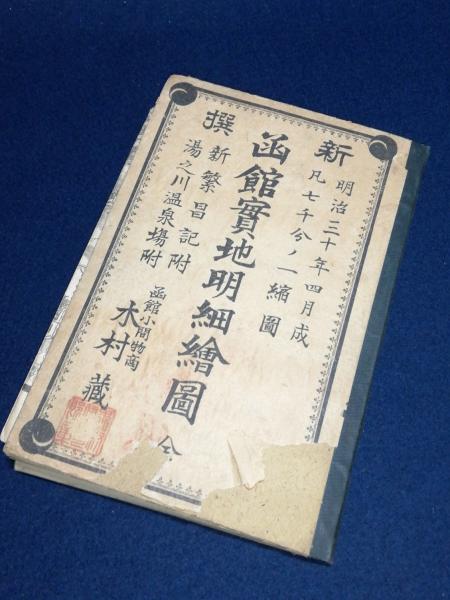 新撰
明治三十年四月成
凡七千分ノ一縮圖
函館實地明細繪圖 全
新繁昌記附
湯之川温泉場附
函館小間物商
木村藏